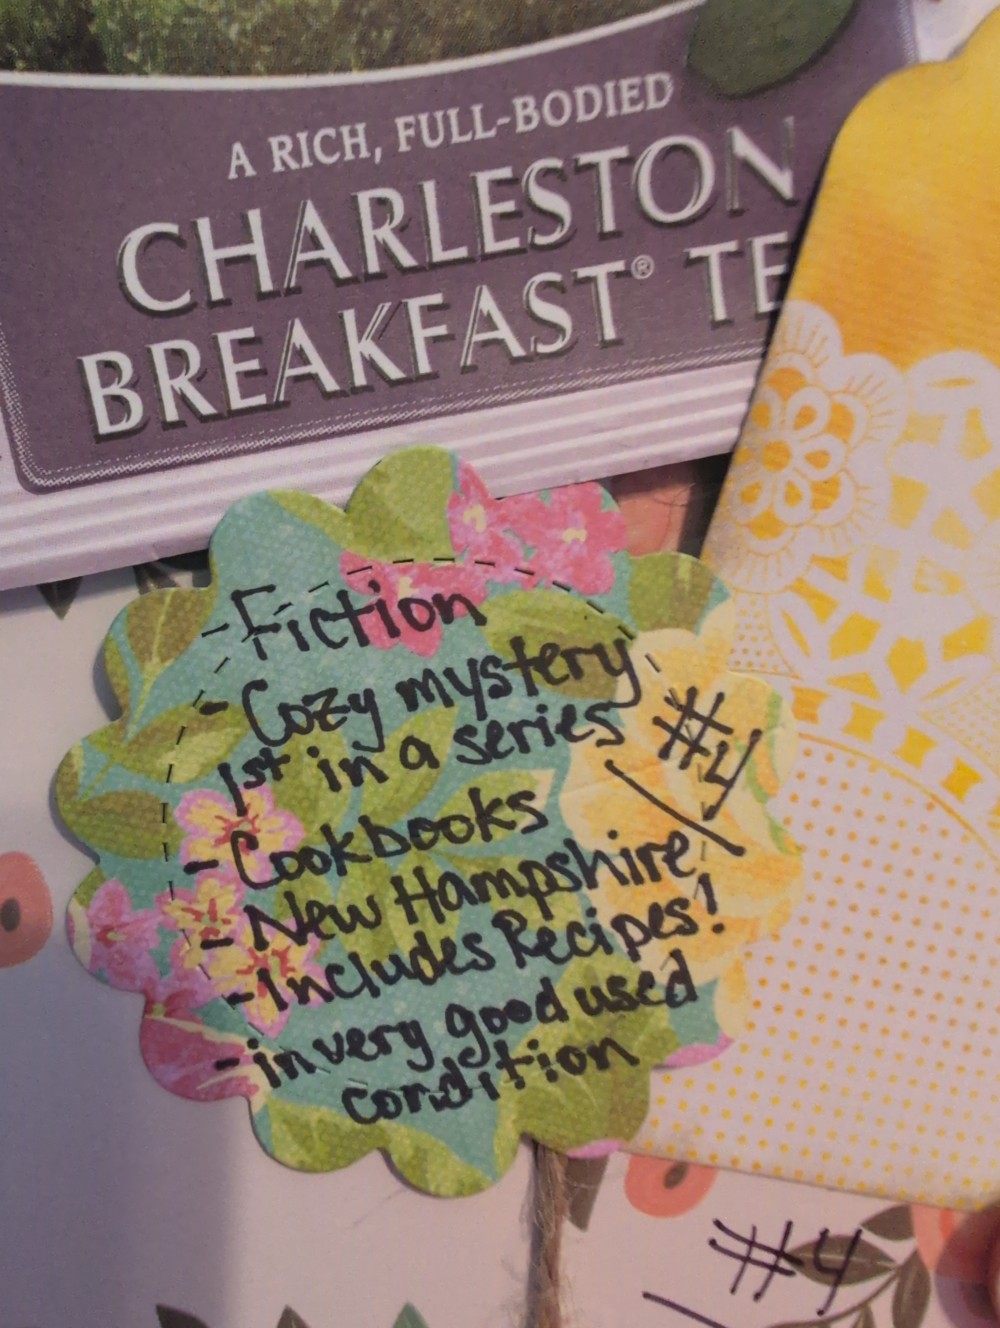 A RICH, FULL-BODIED
CHARLESTON
BREAKFAST® TE
- Fiction
- Cozy mystery
1st in a series
#4
- Cookbooks
- New Hampshire
- Includes Recipes!
- in very good used
condition
#4